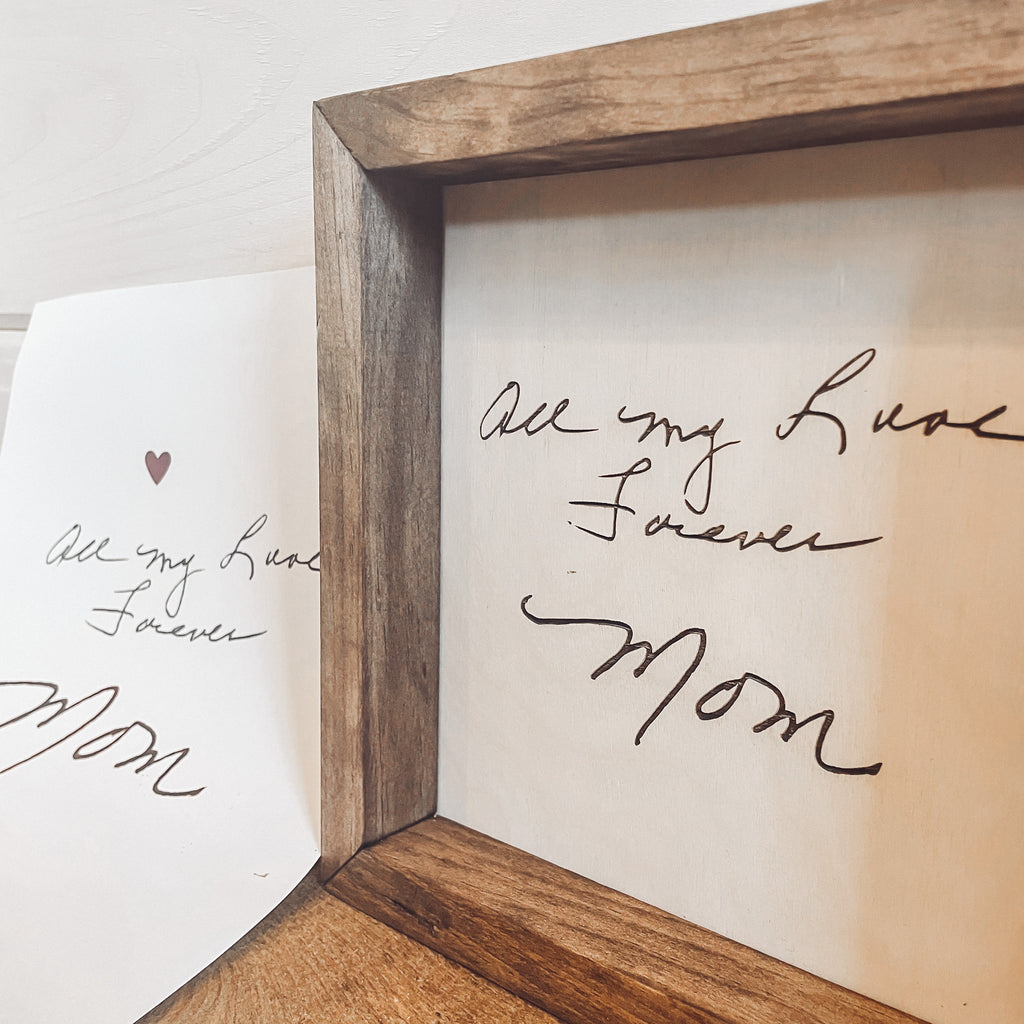 All my Love
Forever
Mom
All my Love
Forever
Mom